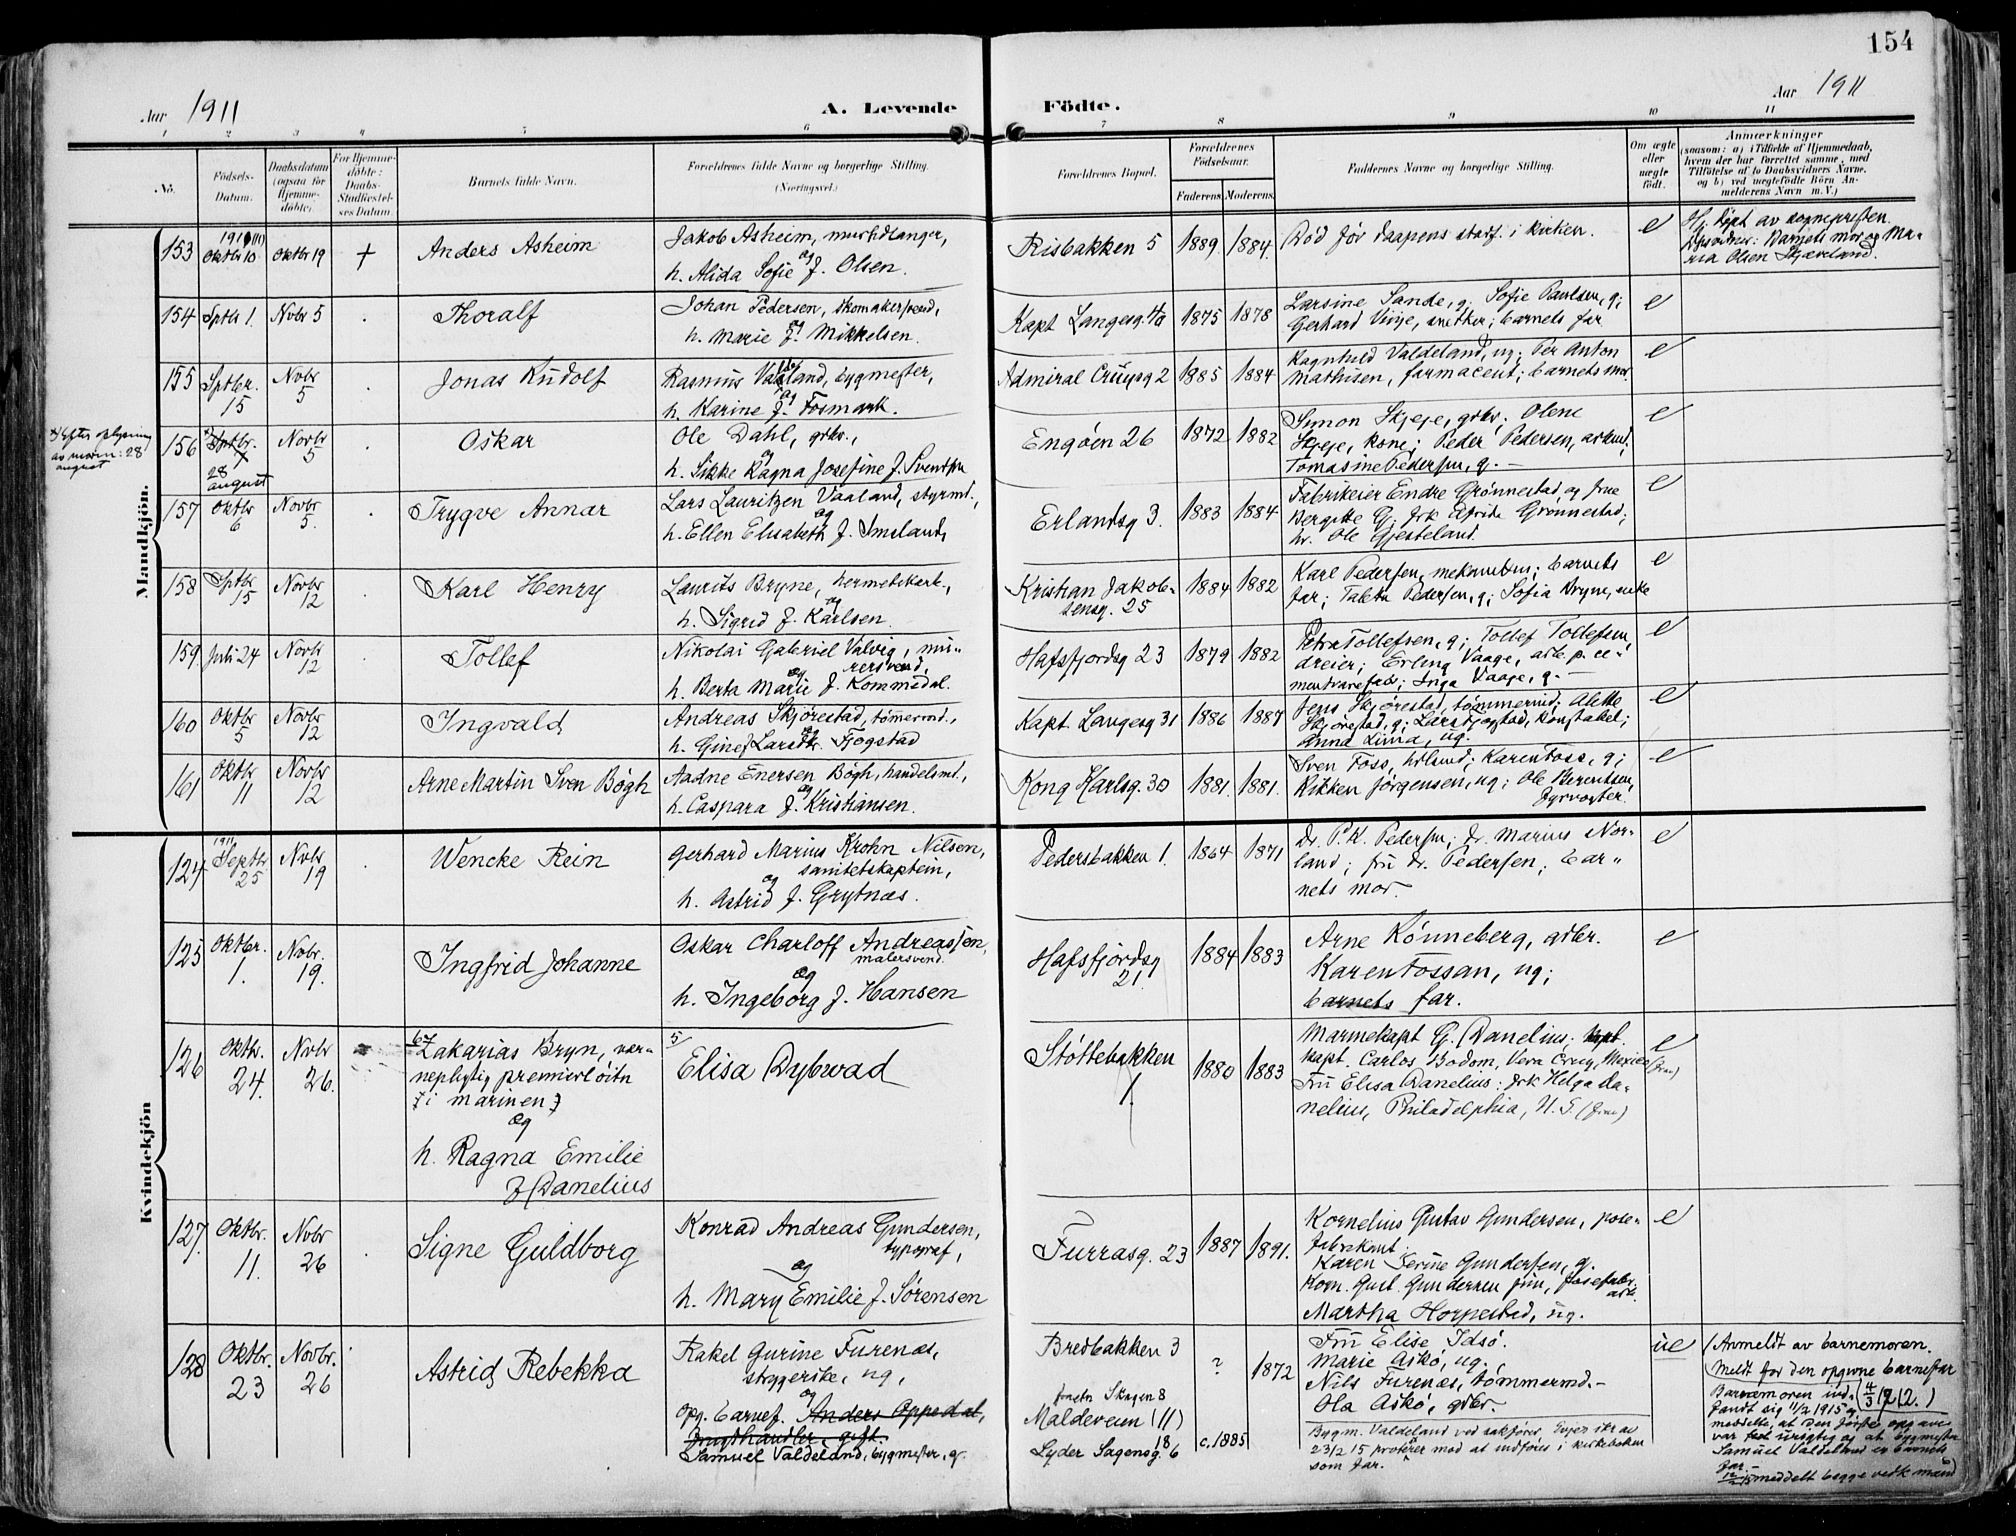 154
Aar 1911
A. Levende
Födte.
Aar 1911
1 2 3 4 5 6 7 8 9 10 11
No.
Födsels-
Datum.
Daabsdatum
(ogsaa for
Hjemme-
döbte).
For Hjemme-
döbte:
Daabs-
Stadfæstel-
ses Datum.
Barnets fulde Navn.
Forældrenes fulde Navne og borgerlige Stilling.
(Næringsvei.)
Forældrenes Bopæl.
Forældrenes
Födselsaar.
Faderens.
Moderens.
Faddernes Navne og borgerlige Stilling.
Om ægte
eller
uægte
födt.
Anmærkninger
(saasom: a) i Tilfælde af Hjemmedaab,
hvem der har forrettet samme, med
Tilföielse af to Daabsvidners Navne,
og b) ved uægtefödte Börn An-
melderens Navn m. V.)
Mandkjön.
153
Oktbr 10
Oktbr 19
+
Anders Asheim
Jakob Asheim, murhdlanger,
og
h. Alida Sofie f. Olsen.
Risbakken 5
1889
1884.
Död før daapens stadf. i kirken.
e
Hj. døpt av sognepresten.
Barnets mor og Ma-
ria Olsen Skjæveland.
154
Sptbr 1.
Novbr 5
Thoralf
Johan Pedersen, skomakersvend,
og
h. Marie f. Mikkelsen.
Kapt Langesg.
1875
1878
Larsine Sande, g. Sofie Paulsen, g;
Gerhard Viije, snekker; barnets far
e
155
Sptbr.
15
Nvbr
5
Jonas Rudolf
Rasmus Valand, bygmester,
og
h. Karine f. Fosmark.
Admiral Cruysg 2
1885
1884
Ragnhild Valdeland, ug; Per Anton
Mathisen, farmaceut; barnets mor.
e
Efter oplysning
av morm: 28
august
156
Sptbr.
28
august
Novbr
5
Oskar
Ole Dahl, grbr.,
og
h. Sikke Ragna Josefine f. Svendsen
Engøen 26
1872
1882
Simon Skjeje, grbr; Olene
Skjeje, kone; Peder Pedersen, arbmd;
Tomasine Pedersen, g. —
e
157
Oktbr
6
Novbr
5.
Trygve Annar
Lars Lauritzen Vaaland, styrmd.,
og
h. Ellen Elisabeth f. Imsland,
Erlandsg 3.
1883
1884
Fabrikeier Endre Grønnestad, og frue
Bergitte G. frk Afride Grønnestad;
hr. Ole Gjesteland.
e
158
Sptbr
15
Novbr
12
Karl Henry
Laurits Bryne, hermetikarb.,
og
h. Sigrid f. Karlsen.
Kristian Jakob-
sensg. 25
1884
1882
Karl Pedersen, mekanikus; barnets
far; Talette Pedersen, g; Sofia Bryne, enke
e
159
Juli 24
Novbr
12
Tollef
Nikolai Gabriel Valvig, mu-
rersvend,
og
h. Berta Marie f. Kommedal.
Hafsfjordsg 23
1879
1882
Petra Tollefsen, g; Tollef Tollefsen,
dreier; Erling Vaage, arb. p. ce-
mentvarefabr; Inga Vaage, g. —
e
160
Oktbr
5
Novbr
12
Ingvald
Andreas Skjørestad, tømmermd.,
og
h. Gine Larsdtr. Fjogstad
Kapt. Langesg 31
1886
1887
Jens Skjørestad, tømmermd; Alette
Skjørestad, g; Lars Fjogstad, konstabel;
Anna Lima, ug.
e
161
Oktbr
11
Novbr
12
Arne Martin Sven Bögh
Aadne Enersen Bögh, handelsmd.,
og
h. Caspara f. Kristiansen.
Kong Karlsg. 30
1881.
1881.
Sven Foss, Karen Foss, g;
Rikken Jörgensen, ug; Ole Berentsen,
fyrvogter.
e
Kvindekjön
124
1911
Septbr
25
Nvbr
19
Wencke Rein
Gerhard Marius Krohn Nilsen,
sanitetskaptein,
og
h. Astrid f. Grytnæs.
Pedersbakken 1.
1864
1871
Dr. P. K. Pedersen; Dr. Marius Nor-
land; fru Dr. Pedersen; bar-
nets mor.
e
125
Oktbr.
1.
Nvbr.
19.
Ingfrid Johanne
Oskar Charloff Andreassen,
malersvend.
og
h. Ingeborg f. Hansen
Hafsfjordsg
21
1884
1883
Arne Rønneberg, grbr.
Karen Fossan, ug;
barnets far.
e
126
Oktbr.
24.
Nvbr
26.
Zakarias Bryn, vær-
nepligtig premierlöitn
i marinen
og
h. Ragna Emilie
f. Danelius
5
Elisa Dybwad
Støttebakken
1.
1880
1883
Marinekapt G. Danelius,
kapt. Carlos Bodom, Vera Cruz, Mexico
Fru Elisa Danelius; frk Helga Da-
nelius, Philadelphia, N. S. (frav)
e
127.
Oktbr.
11.
Nvbr
26
Signe Guldborg
Konrad Andreas Gundersen,
typograf,
og
h. Mary Emilie f. Sørensen
Furrasg. 23
1887
1891.
Kornelius Gustav Gundersen, pose-
fabrikant.
Karen Serine Gundersen, g.
Korn. Gust. Gundersen jun, posefabr.
arb.
Martha Horpestad, ug.
e
128
Oktbr.
23
Novbr.
26
Astrid Rebekka
Rakel Gurine Furenæs,
strygerske, ug,
og
opg. barnef. Anders Oppedal,
frugthandler, gift.
Samuel Valdeland, bygmester, g.
Bredbakken 3
Skagen 8
Maldeveien (11)
Lyder Sagensg. 6
?
c. 1885
1872
Fru Elise Idsö.
Marie Askö, ug.
Nils Furenæs, tömmermd. —
Ola Askö, grbr. —
Bygm. Valdeland ved sakfører
23/2 15 mod at indføres i kirkeboken
som far.
ue
(Anmeldt av barnemoren.
(Meldt for den opgivne barnefar
Barnemoren ind-
fandt sig 11/2 1915 og
meddelte, at den først opg. avne
var urigtig og at bygmester
Samuel Valdeland er barnets
far. —
meddelt begge vedk mænd)